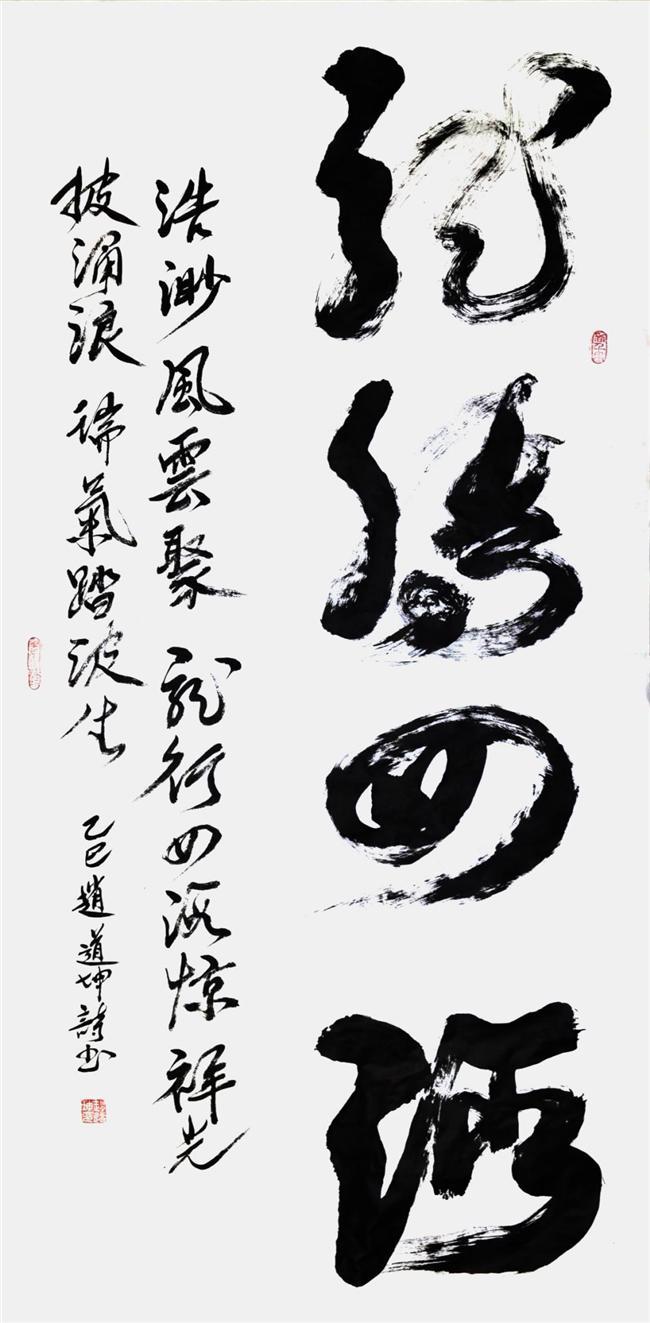 龍騰四海
浩渺風雲聚 龍行四海惊 祥光
披涌浪 瑞氣踏波生
乙巳趙道坤詩書